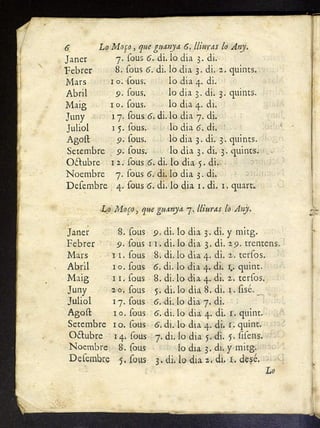 6 Lo Moço, que guanya 6. lliuras lo Any.
Janer 7. ſous 6. di. lo dia 3. di.
Febrer 8. ſous 6. di. lo dia 3. di. 2. quints.
Mars 10. ſous. lo dia 4. di.
Abril 9. ſous. lo dia 3. di. 3. quints.
Maig 10. ſous. lo dia 4. di.
Juny 17. ſous 6. di. lo dia 7. di.
Juliol 15. ſous. lo dia 6. di.
Agoſt 9. ſous. lo dia 3. di. 3. quints.
Setembre 9. ſous. lo dia 3. di. 3. quints.
Octubre 12. ſous 6. di. lo dia 5. di.
Noembre 7. ſous 6. di. lo dia 3. di.
Deſembre 4. ſous 6. di. lo dia 1. di. 1. quart.
Lo Moço, que guanya 7. lliuras lo Any.
Janer 8. ſous 9. di. lo dia 3. di. y mitg.
Febrer 9. ſous 11. di. lo dia 3. di. 29. trentens.
Mars 11. ſous 8. di. lo dia 4. di. 2. terſos.
Abril 10. ſous 6. di. lo dia 4. di. 1. quint.
Maig 11. ſous 8. di. lo dia 4. di. 2. terſos.
Juny 20. ſous 5. di. lo dia 8. di. 1. ſisé.
Juliol 17. ſous 6. di. lo dia 7. di.
Agoſt 10. ſous 6. di. lo dia 4. di. 1. quint.
Setembre 10. ſous 6. di. lo dia 4. di. 1. quint.
Octubre 14. ſous 7. di. lo dia 5. di. 5. ſiſens.
Noembre 8. ſous lo dia 3. di. y mitg.
Deſembre 5. ſous 3. di. lo dia 2. di. 1. desé.
Lo